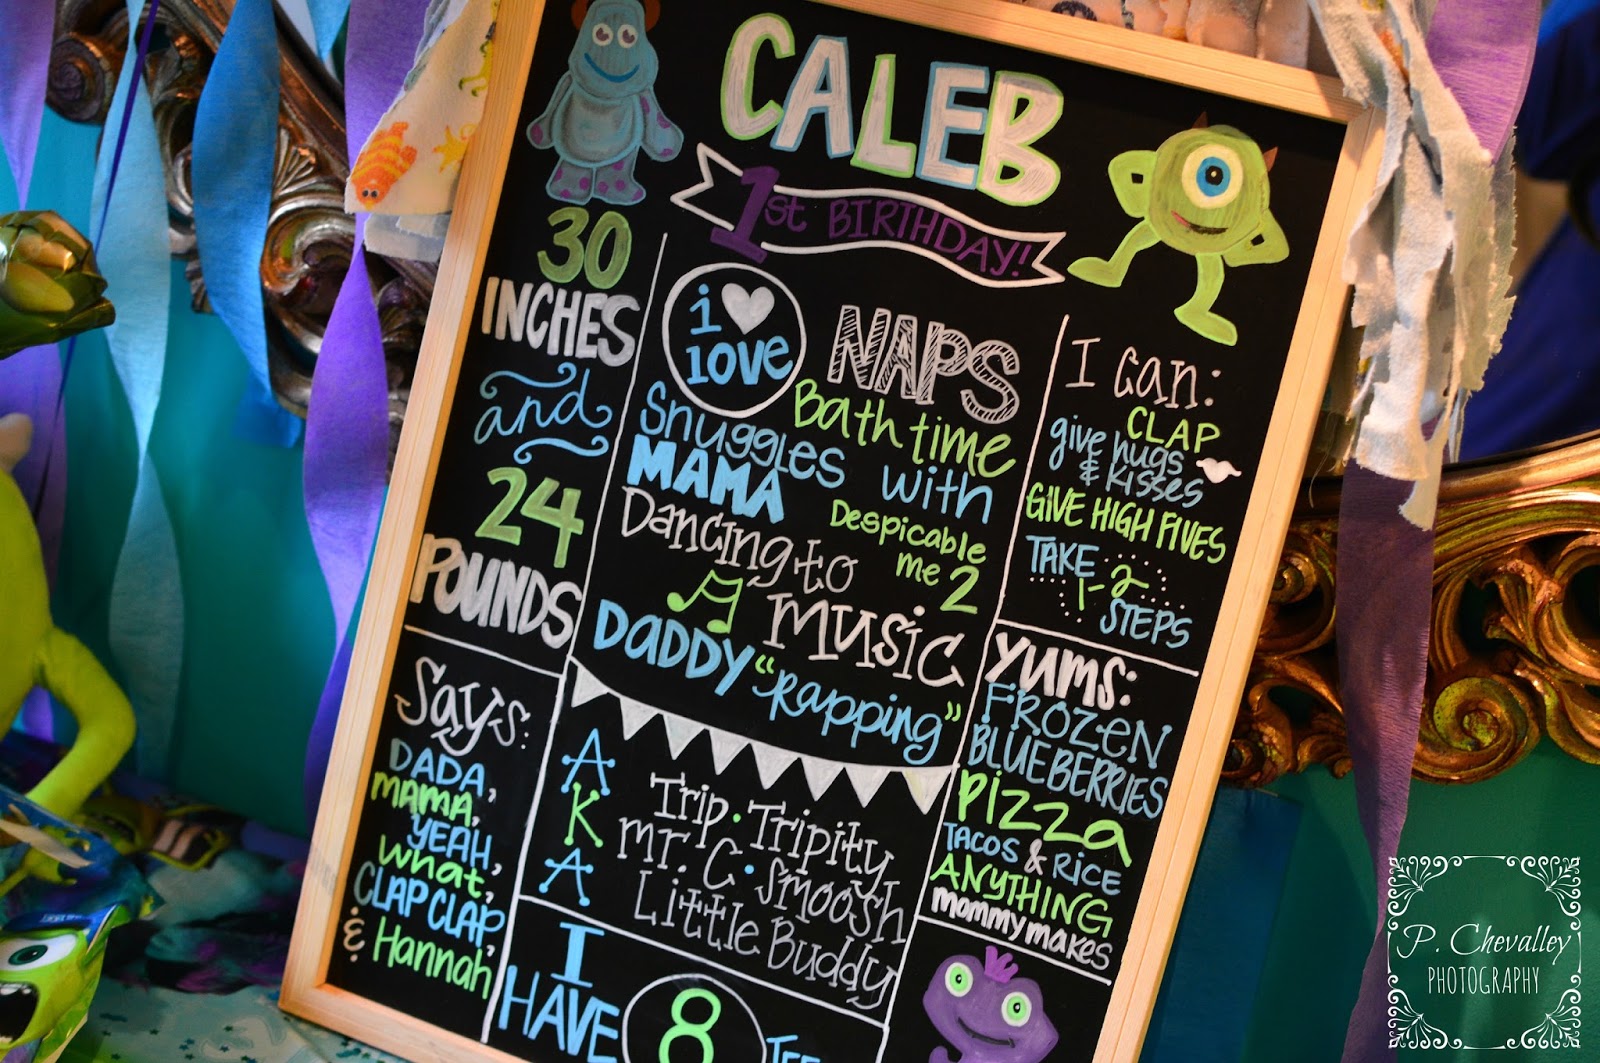 CALEB
1st BIRTHDAY!
30
INCHES
and
24
POUNDS
i
love
NAPS
Bath time
Snuggles with
MAMA
Despicable
me 2
Dancing to
music
DaDDY "Rapping"
I can:
CLAP
give hugs
& Kisses
GIVE HIGH FIVES
TAKE
1-2
STEPS
Says:
DADA,
mama,
YEAH,
what,
CLAP CLAP,
& Hannah
AKA
Trip · Tripity
mr. C · Smoosh
Little Buddy
Yums:
FROZEN
BLUEBERRIES
Pizza
TACOS & RICE
ANYTHING
mommy makes
I
HAVE
8
P. Chevalley
PHOTOGRAPHY